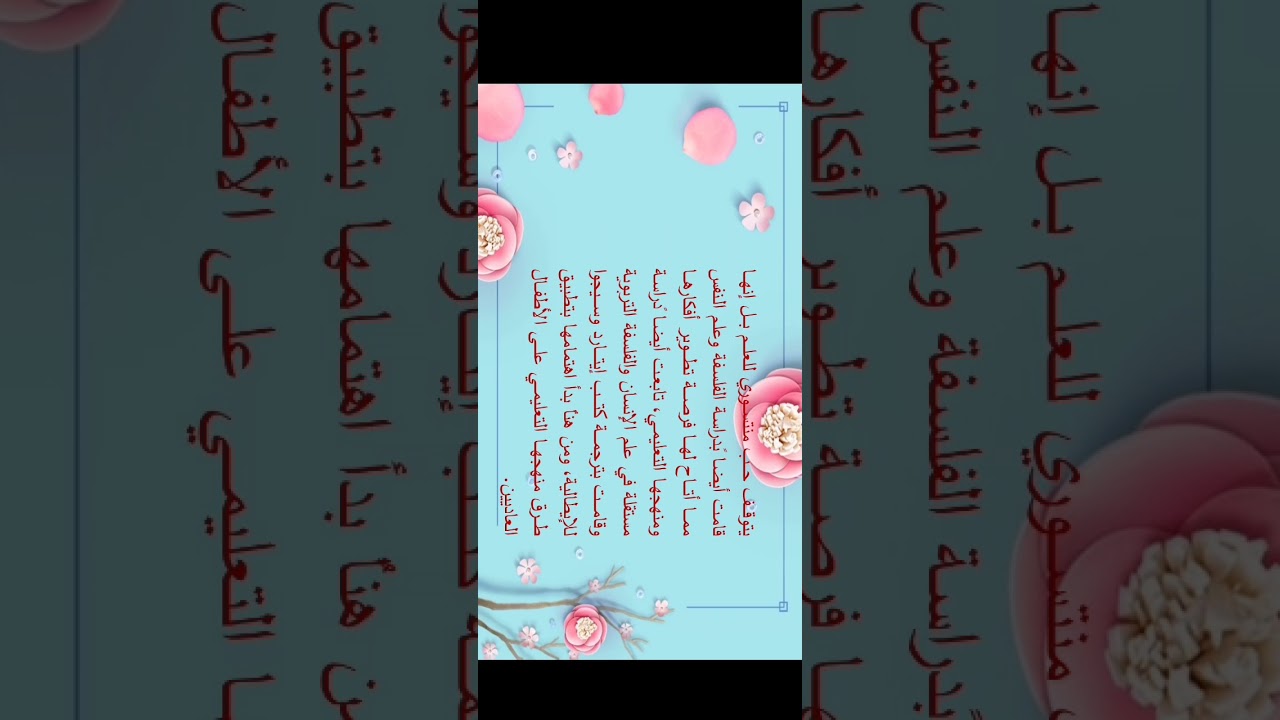 يتوقف حب منتسوري للعلم بل إنها
قامت أيضاً بدراسة الفلسفة وعلم النفس
مما أتاح لها فرصة تطوير أفكارها
ومنهجها التعليمي، تابعت أيضاً دراسة
مستقلة في علم الإنسان والفلسفة التربوية
وقامت بترجمة كتب إيتارد وسيجوا
للإيطالية، ومن هنأ بدأ اهتمامها بتطبيق
طرق منهجها التعليمي على الأطفال
العاديين.